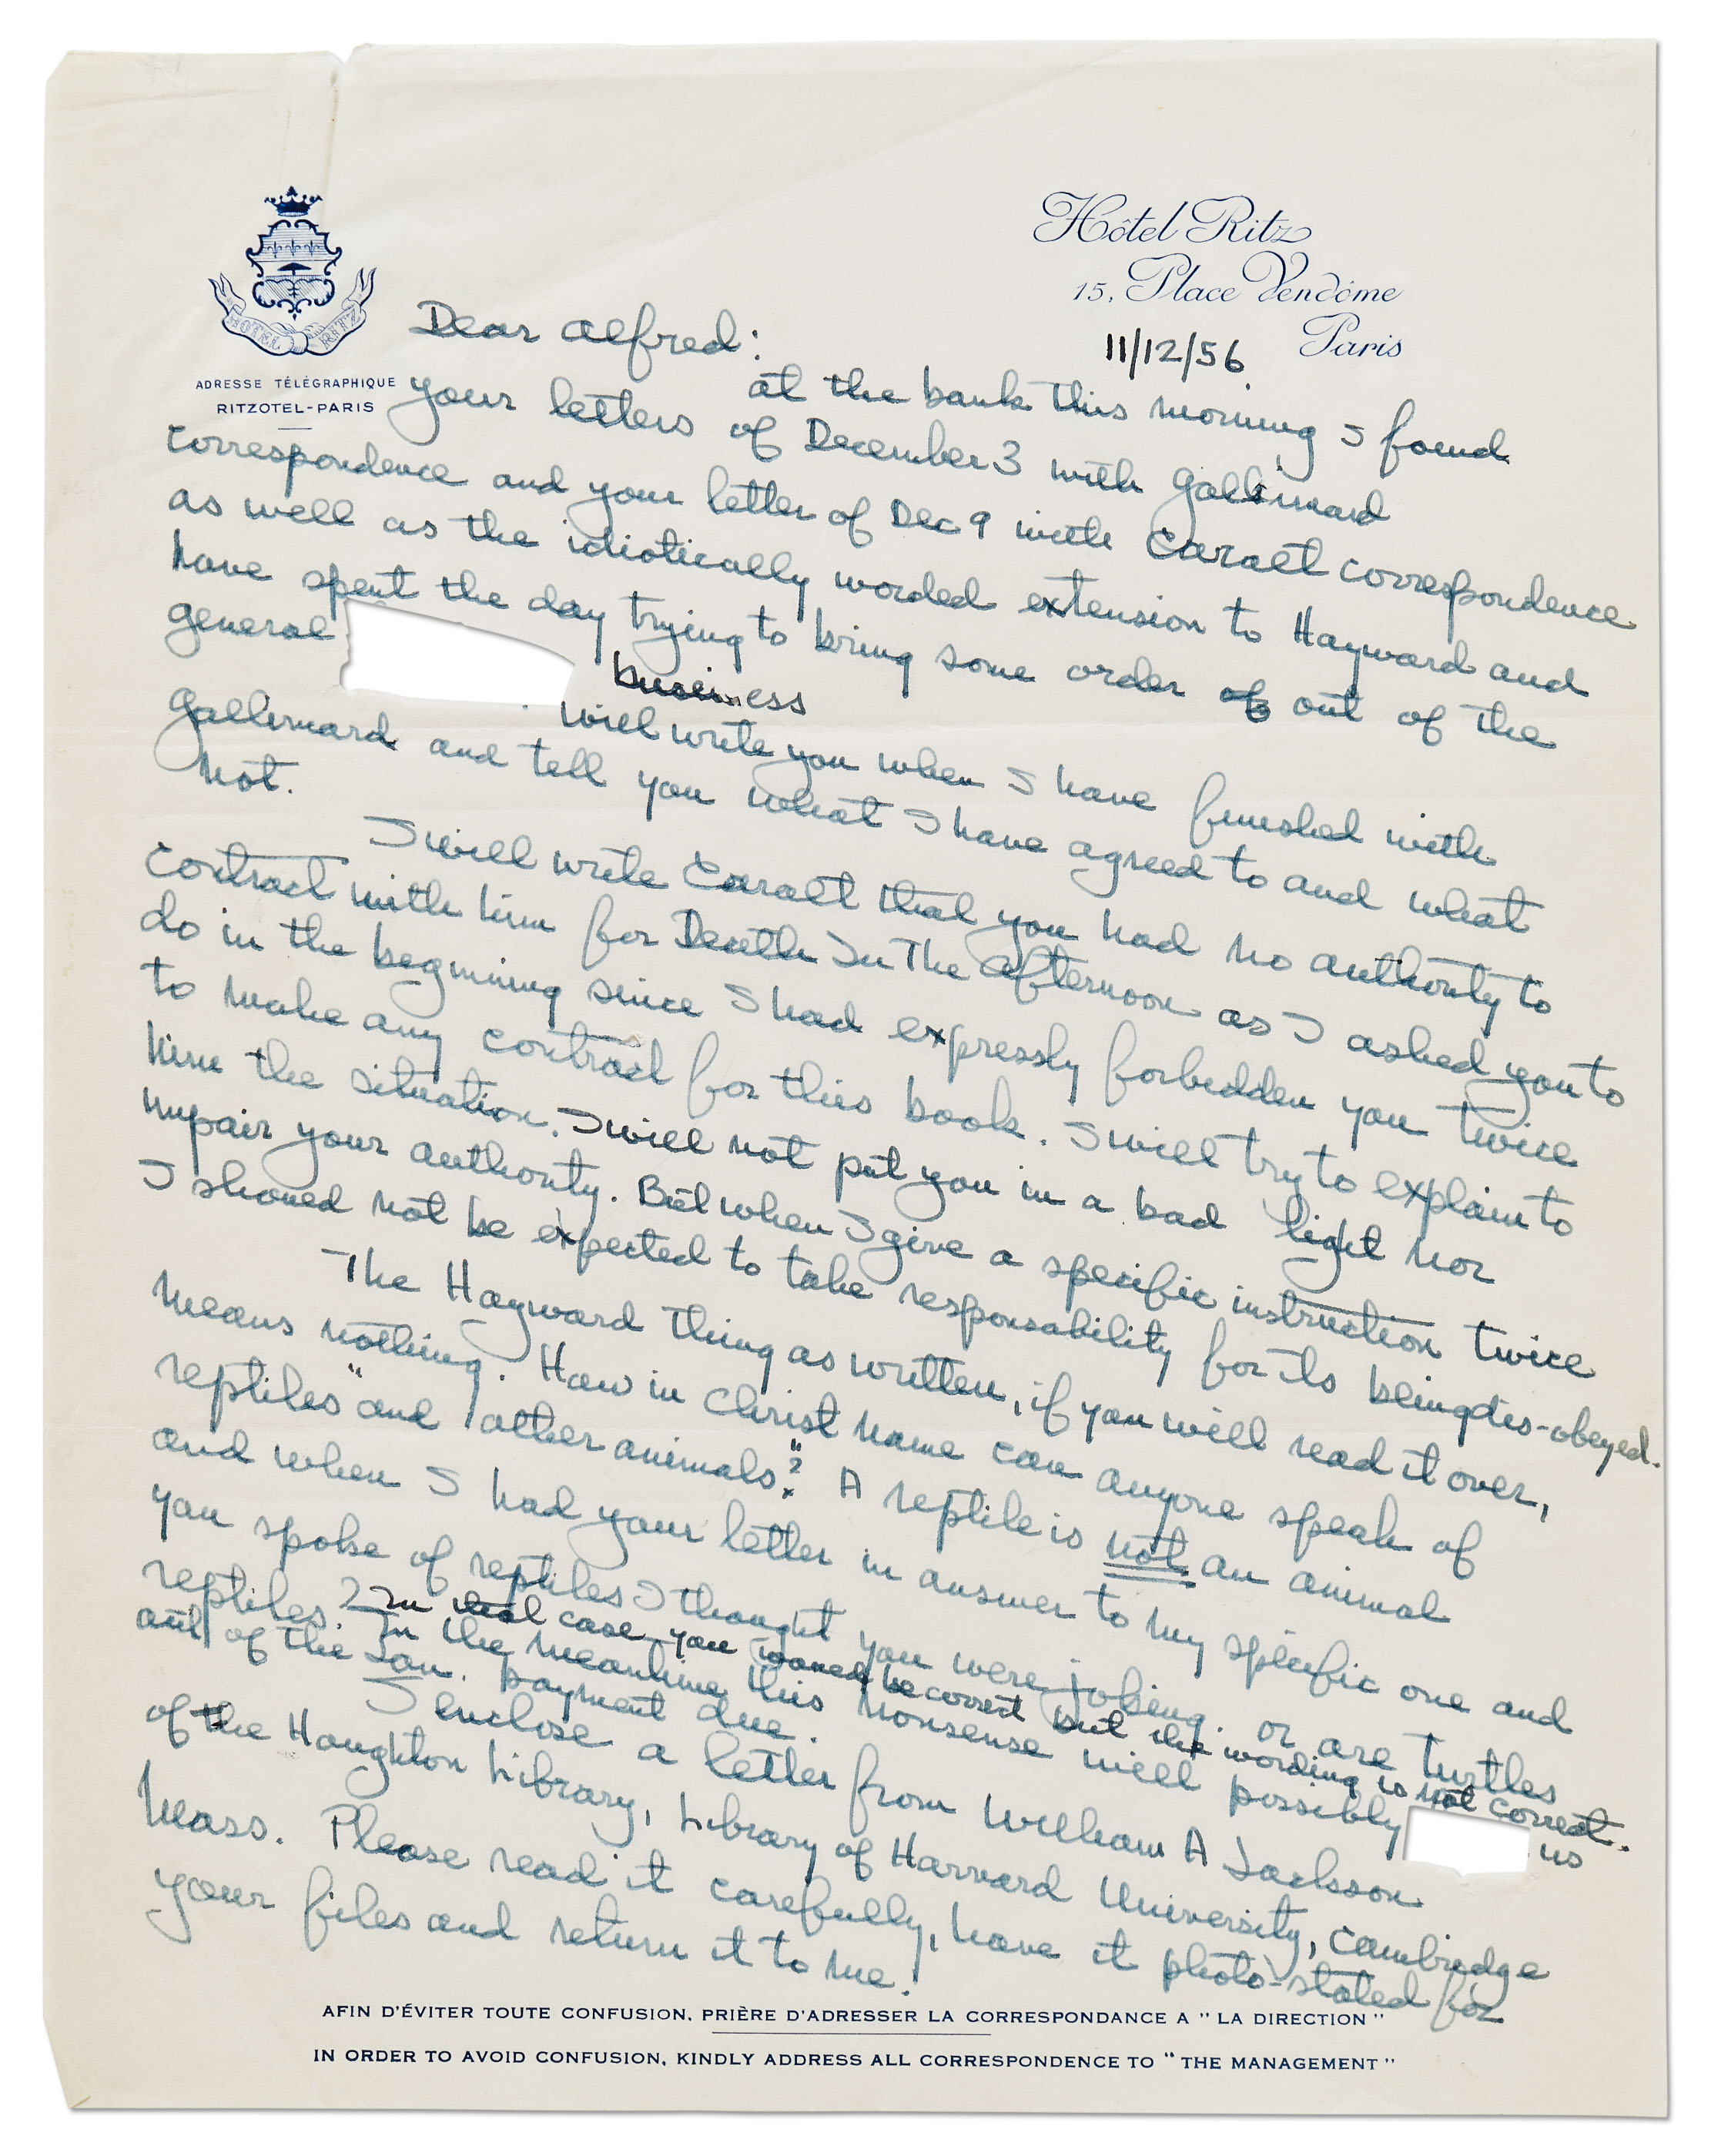 Hôtel Ritz
15, Place Vendôme
Paris
HOTEL RITZ
ADRESSE TÉLÉGRAPHIQUE
RITZOTEL-PARIS
11/12/56
Dear Alfred:
At the bank this morning I found
your letters of December 3 with Gallimard
correspondence and your letter of Dec 9 with Caralt correspondence
as well as the idiotically worded extension to Hayward and
have spent the day trying to bring some order of out of the
general
business
will write you when I have finished with
Gallimard and tell you what I have agreed to and what
not.
I will write Caralt that you had no authority to
contract with him for Death In The Afternoon as I asked you to
do in the beginning since I had expressly forbidden you twice
to make any contract for this book. I will try to explain to
him the situation. I will not put you in a bad light nor
impair your authority. But when I give a specific instruction twice
I should not be expected to take responsability for its being dis-obeyed.
The Hayward thing as written, if you will read it over,
means nothing. How in Christ name can anyone speak of
reptiles "and other animals"? A reptile is not an animal
and when I had your letter in answer to my specific one and
you spoke of reptiles I thought you were joking. Or are turtles
reptiles? In that case you would be correct but the wording is not correct.
In the meantime this nonsense will possibly us
out of the Jan. payment due.
I enclose a letter from William A Jackson
of the Houghton Library, Library of Harvard University, Cambridge
Mass. Please read it carefully, have it photo-stated for
your files and return it to me.
AFIN D'ÉVITER TOUTE CONFUSION, PRIÈRE D'ADRESSER LA CORRESPONDANCE A " LA DIRECTION "
IN ORDER TO AVOID CONFUSION, KINDLY ADDRESS ALL CORRESPONDENCE TO " THE MANAGEMENT "